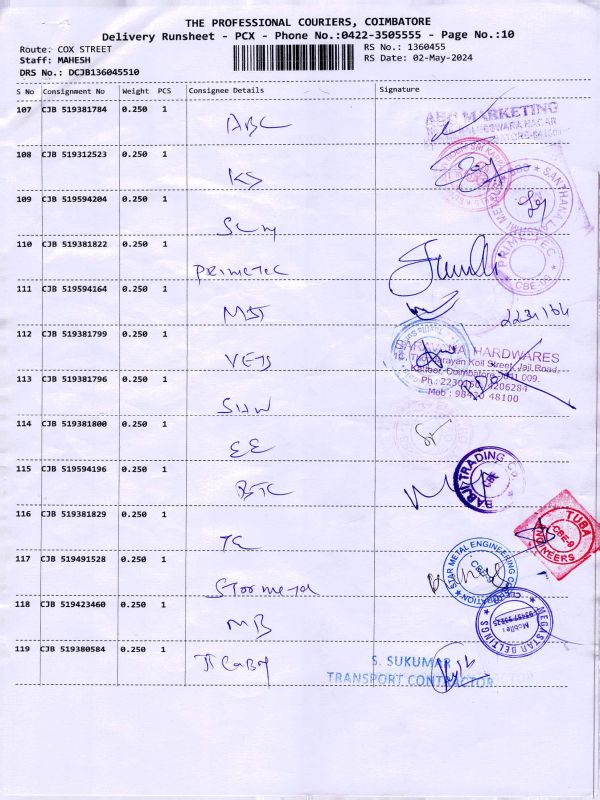 THE PROFESSIONAL COURIERS, COIMBATORE
Delivery Runsheet - PCX - Phone No.:0422-3505555 - Page No.:10
Route: COX STREET
RS No.: 1360455
Staff: MAHESH
RS Date: 02-May-2024
DRS No.: DCJB136045510
S No Consignment No Weight PCS Consignee Details Signature
107 CJB 519381784 0.250 1 ABC
ABC MARKETING
108 CJB 519312523 0.250 1 KS
109 CJB 519594204 0.250 1
SANTHANA
110 CJB 519381822 0.250 1 PRIMETEC
PRIMETEC
CBE-
111 CJB 519594164 0.250 1
2231164
112 CJB 519381799 0.250 1 VETS
HARDWARES
Koil Street, Jail Road,
Coimbatore 641 009.
4206284
Mob : 98420 48100
113 CJB 519381796 0.250 1 SHW
114 CJB 519381800 0.250 1 EE
115 CJB 519594196 0.250 1 BTC
BABJI TRADING CO.
116 CJB 519381829 0.250 1 TC
TUBA ENGINEERS
CBE-9
117 CJB 519491528 0.250 1 Starmetal
STAR METAL ENGINEERING CORPORATION
118 CJB 519423460 0.250 1 MB
MEGASTAR BELTINGS
Mobile:
119 CJB 519380584 0.250 1
S. SUKUMAR
TRANSPORT CONTRACTOR